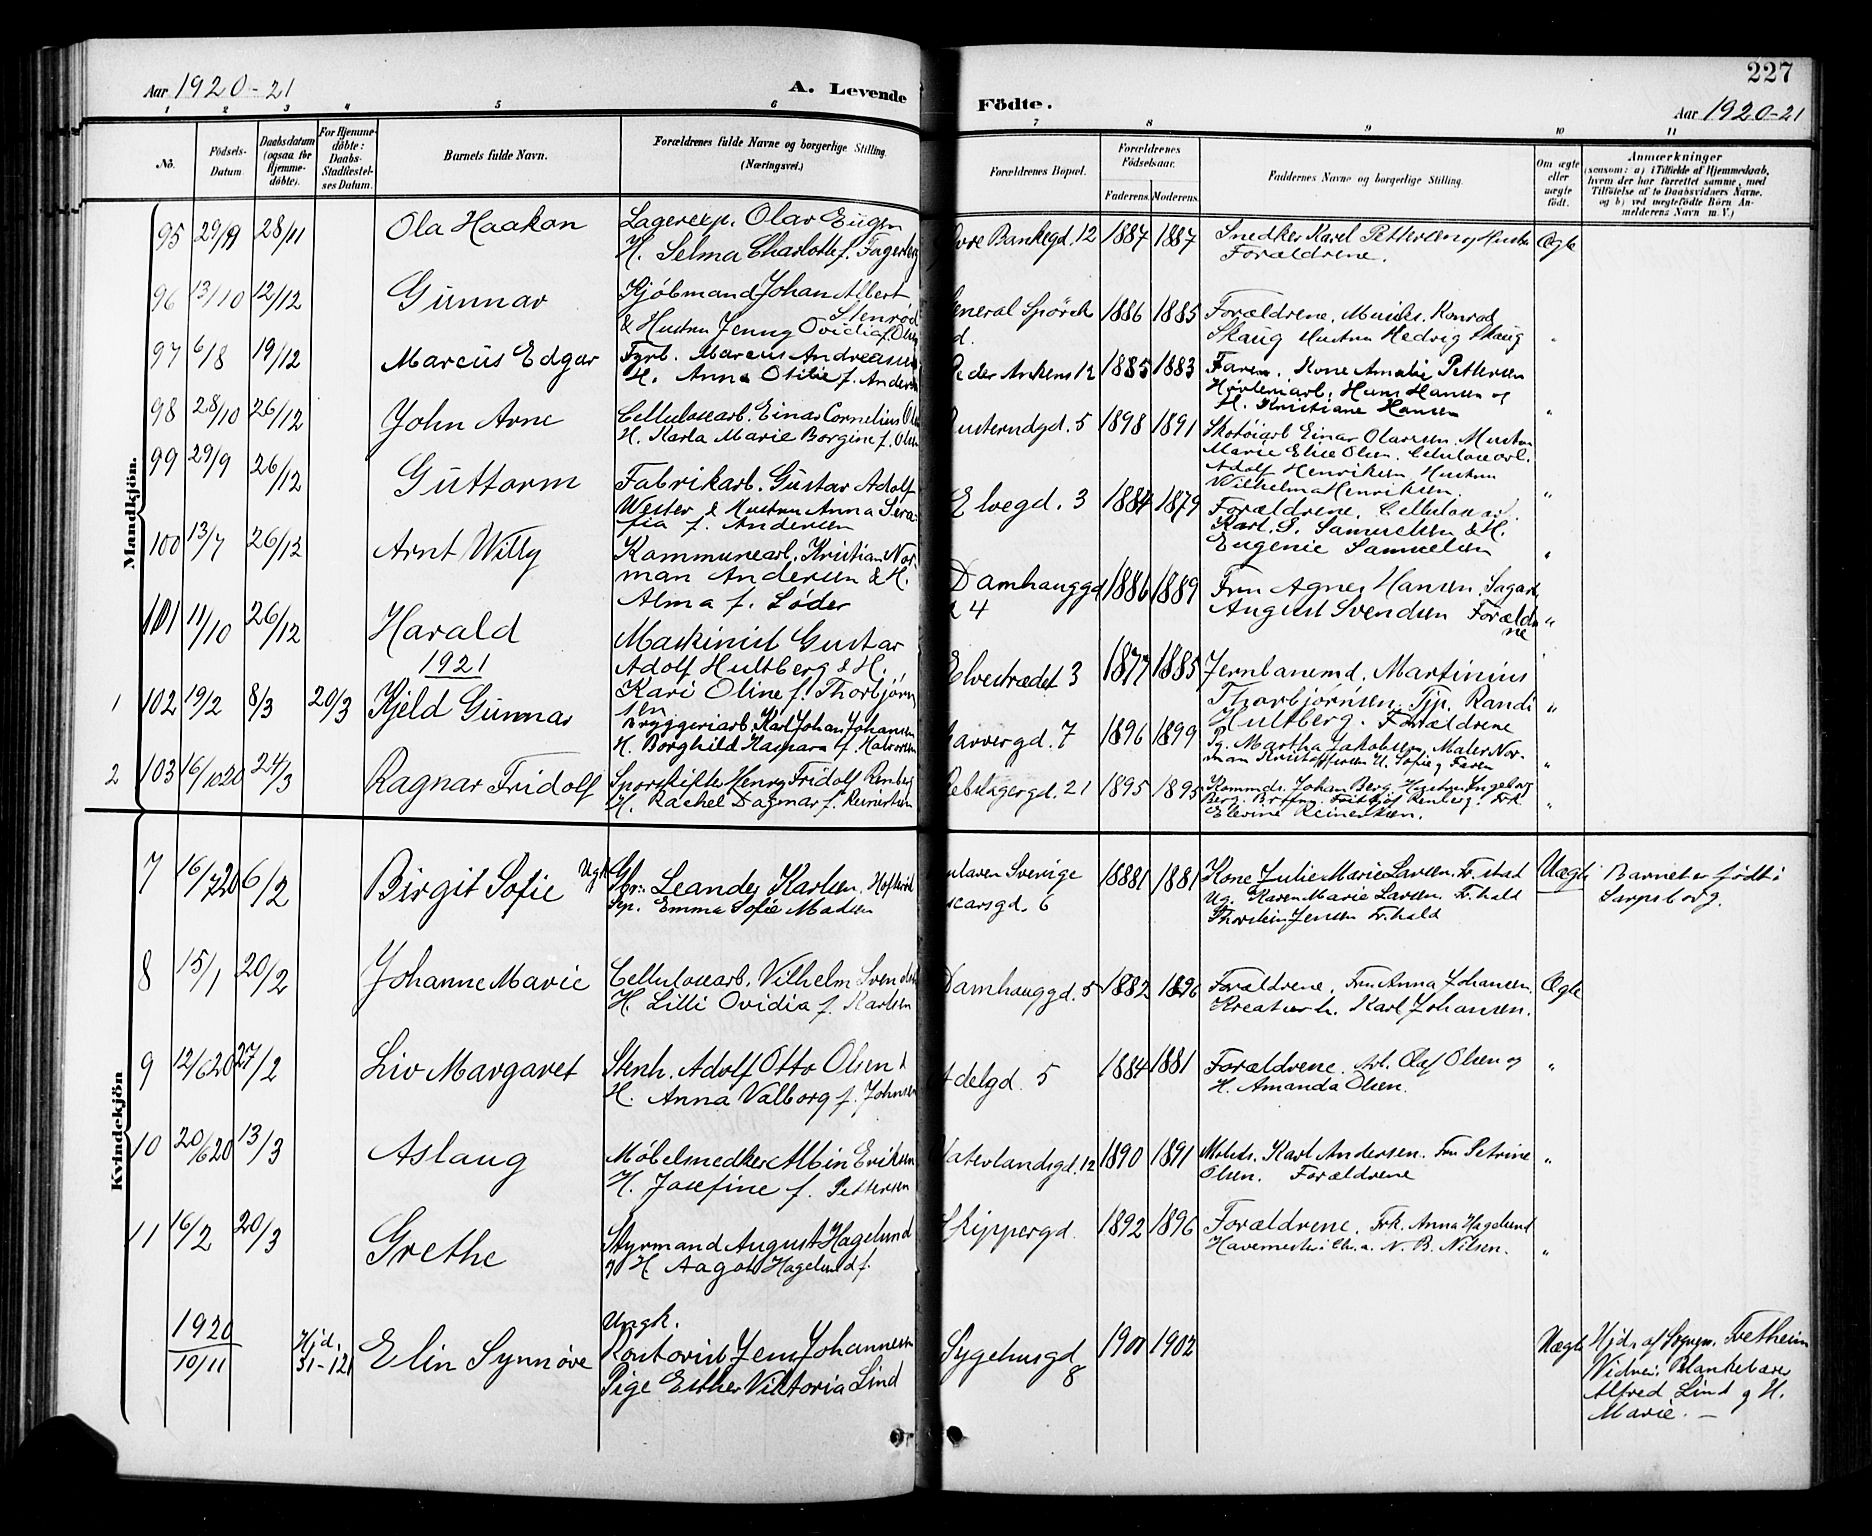 Aar 1920-21
A. Levende
Födte.
227
Aar 1920-21
1 2 3 4 5 6 7 8 9 10 11
No.
Födsels-Datum
Daabsdatum (ogsaa for Hjemme-döbte).
For Hjemme-döbte: Daabs-Stadfæstel-ses Datum.
Barnets fulde Navn.
Forældrenes fulde Navne og borgerlige Stilling. (Næringsvei.)
Forældrenes Bopæl.
Forældrenes Födselsaar.
Faderens Moderens
Faddernes Navne og borgerlige Stilling.
Om ægte eller uægte födt.
Anmærkninger
(saasom: a) i Tilfælde af Hjemmedaab,
hvem der har forrettet samme, med
Tilföielse af to Daabsvidners Navne,
og b) ved uægtefödte Börn An-
melderens Navn m. V.)
Mandkjön.
95 29/9 28/11 Ola Haakon
Lagerexp. Olav Eugen
H. Selma Charlotte f. Fagerberg
Bankegd. 12 1887 1887
Snedker Karel Pettersen og Hustru
Forældrene.
Ægte
96 13/10 12/12 Gunnar
Kjöbmand Johan Albert
Stenröd
& Hustru Jenny Ovidia f. Olsen
General Spörck
1886 1885
Forældrene. Musiks. Konrad
Skaug Hustru Hedvig Skaug
"
97 6/8 19/12 Marcus Edgar
Fyrb. Marcus Andreassen
H. Anna Otilie f. Anders
Peder Ankers 12 1885 1883
Faren. Kone Amalie Pettersen
Høvleriarb. Hans Hansen og
H. Kristiane Hansen
"
98 28/10 26/12 John Arne
Cellulosearb. Einar Cornelius Olsen
H. Karla Marie Borgine f. Olsen
5 1898 1891
Skotøiarb Einar Olavsen. Hustru
Marie Elise Olsen. Cellulosearb.
Adolf Henriksen Hustru
Wilhelma Henriksen.
"
99 29/9 26/12 Guttorm
Fabrikarb. Gustav Adolf
Wester & Hustru Anna Sera-
fia f. Andersen
Elvegd. 3 1884 1879
Forældrene. Cellulosearb.
Karl. S. Samuelsen & H.
Eugenie Samuelsen
"
100 13/7 26/12 Arnt Willy
Kommunearb. Kristian Nor-
man Andersen & H.
Alma f. Løder
Damhauggd
4 1886 1889
Fru Agnes Hansen. Sagarb
August Svendsen Foreldre
ne
"
101 11/10 26/12 Harald
Maskinist Gustav
Adolf Hultberg & H.
Kari Oline f. Thorbjørn
sen
Elvestrædet 3 1877 1885
Jernbanemd. Martinius
Thorbjørnsen. Tjp. Randi
Hultberg. Forældrene
"
1921
1 102 19/2 8/3 20/3 Kjeld Gunnar
Bryggeriarb. Karl Johan Johansen
H. Borghild Kaspara f. Halvorsen
Garvergd. 7 1896 1899
Pg. Martha Jakobsen, Maler Nor-
man Kristoffersen H. Sofie og Faren
"
2 103 16/10 20 24/3 Ragnar Fridolf
Sporskifter Henry Fridolf Renberg
H. Rachel Dagmar f. Reinertsen
Rebslagergd. 21 1895 1895
Kommds. Johan Berg Hustru Ingeborg
Berg. Fritjof Renberg. Frk.
Elevine Reinertsen.
"
Kvindekjön
7 16/7 20 6/2 Birgit Sofie
Ugk.
Leander Karlsen.
Emma Sofie Madsen
Sverige
Oscarsgd. 6 1888 1881
Kone Julie Marie Larsen. Fr.stad
Ug. Karen Marie Larsen. Fr.hald
Thorstein Jensen Fr.hald
Uægte
Barnet er født i
Sarpsborg.
8 15/1 20/2 Johanne Marie
Cellulosearb. Vilhelm Svendsen
H. Lilli Ovidia f. Karlsen
Damhauggd. 5 1882 1896
Forældrene. Fru Anna Johansen.
Kreaturh. Karl Johansen.
Ægte
9 12/6 20 27/2 Liv Margaret
Stenh. Adolf Otto Olsen &
H. Anna Valborg f. Johnsen
Adelgd. 5 1884 1881
Forældrene. Arb. Olaf Olsen og
H. Amanda Olsen.
"
10 20/6 20 13/3 Aslaug
Møbelsnedker Albin Eriksen
H. Josefine f. Pettersen
Vaterlandsgd. 12 1890 1891
Møbels. Karl Andersen. Fru Petrine
Olsen. Forældrene
"
11 16/2 20/3 Grethe
Styrmand August Hagelund
og H Aagot Hagelund f.
Skippergd. 1892 1896
Forældrene. Frk. Anna Hagelund
Havemester N. B. Nilsen.
"
1920
10/11
Hjd.
31-12
Elin Synnøve
Ungk.
Kontorist Jens Johannesen
Pige Esther Viktoria Lind
Sygehusgd
8
1901 1902
Uægte
Hjd. af Sognepr. Tretheim
Vidner: Blankebærer
Alfred Lind og H.
Marie. —